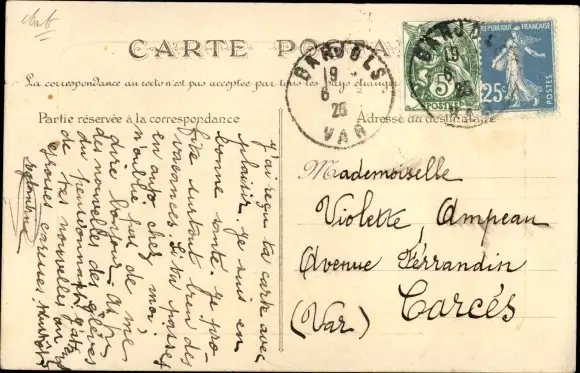 CARTE POSTALE
La correspondance au recto n'est pas acceptée par tous les pays étrangers
Partie réservée à la correspondance
Adresse du destinataire
BARJOLS
19
6
26
VAR
BARJOLS
19
6
26
5
POSTES
RÉPUBLIQUE FRANÇAISE
25c
POSTES
J'ai reçu ta carte avec
plaisir. Je suis en
bonne santé. Je pro-
fite surtout bien des
vacances. Si tu passes
en auto chez moi,
n'oublie pas de me
dire bonjour.
des nouvelles des élèves
du pensionnat
de tes nouvelles
grosses caresses.
Mademoiselle
Violette Ampeau
Avenue Férrandin
Carcés
(Var)